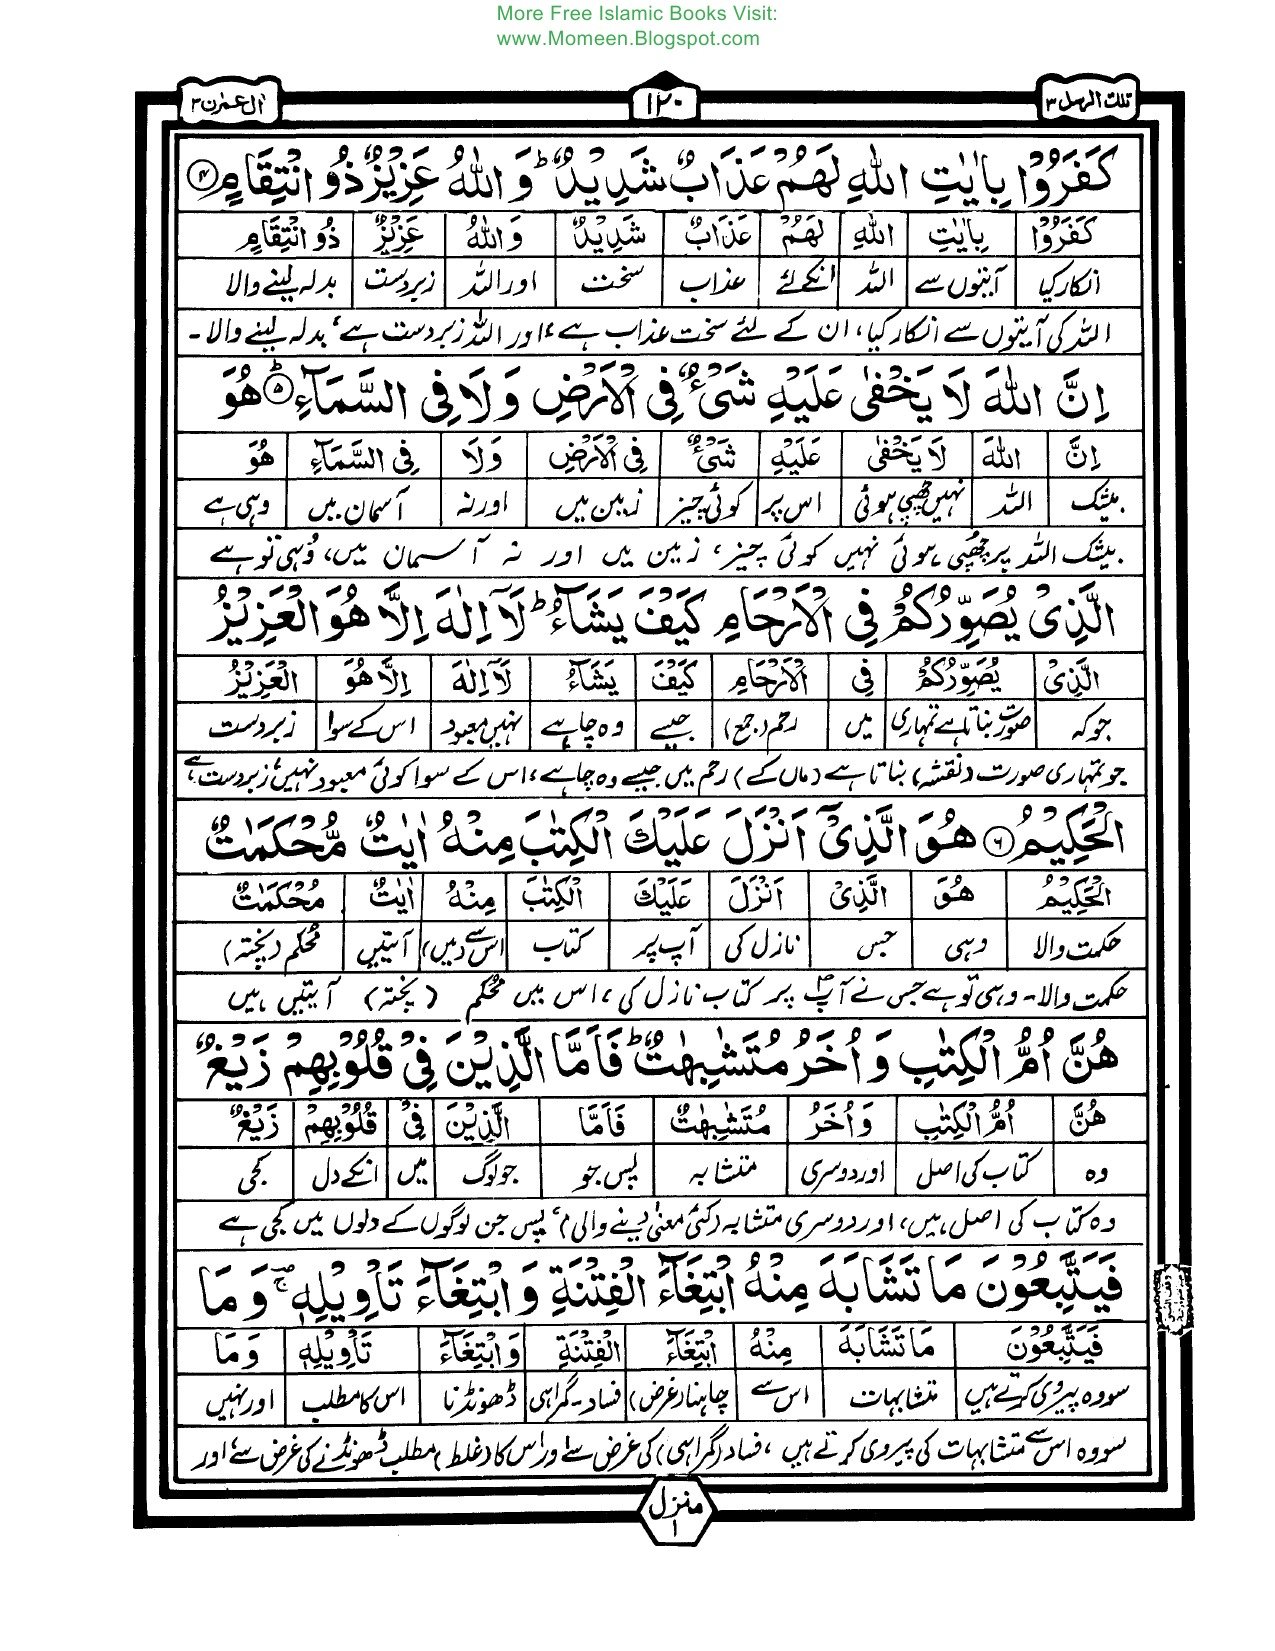 More Free Islamic Books Visit:
www.Momeen.Blogspot.com
تلك الرسل ٣
١٢٠
اٰل عمرٰن ٣
كَفَرُوْا بِاٰيٰتِ اللّٰهِ لَهُمْ عَذَابٌ شَدِيْدٌ ؕ وَاللّٰهُ عَزِيْزٌ ذُو انْتِقَامٍ ﴿۴﴾
كَفَرُوْا بِاٰيٰتِ اللّٰهِ لَهُمْ عَذَابٌ شَدِيْدٌ وَاللّٰهُ عَزِيْزٌ ذُو انْتِقَامٍ
انکار کیا آیتوں سے اللہ انکے لئے عذاب سخت اور اللہ زبردست بدلہ لینے والا
اللہ کی آیتوں سے انکار کیا، ان کے لئے سخت عذاب ہے، اور اللہ زبردست ہے، بدلہ لینے والا۔
اِنَّ اللّٰهَ لَا يَخْفٰى عَلَيْهِ شَىْءٌ فِى الْاَرْضِ وَلَا فِى السَّمَآءِ ﴿۵﴾ؕ هُوَ
اِنَّ اللّٰهَ لَا يَخْفٰى عَلَيْهِ شَىْءٌ فِى الْاَرْضِ وَلَا فِى السَّمَآءِ هُوَ
بیشک اللہ نہیں چھپی ہوئی اس پر کوئی چیز زمین میں اور نہ آسمان میں وہی ہے
بیشک اللہ پر چھپی ہوئی نہیں کوئی چیز، زمین میں اور نہ آسمان میں، وُہی تو ہے
الَّذِىْ يُصَوِّرُكُمْ فِى الْاَرْحَامِ كَيْفَ يَشَآءُ ؕ لَاۤ اِلٰهَ اِلَّا هُوَ الْعَزِيْزُ
الَّذِىْ يُصَوِّرُكُمْ فِى الْاَرْحَامِ كَيْفَ يَشَآءُ لَاۤ اِلٰهَ اِلَّا هُوَ الْعَزِيْزُ
جو کہ صورت بناتا ہے تمہاری میں رحم (جمع) جیسے وہ چاہے نہیں معبود اس کے سوا زبردست
جو تمہاری صورت (نقشہ) بناتا ہے (ماں کے) رحم میں جیسے وہ چاہے، اس کے سوا کوئی معبود نہیں، زبردست ہے
الْحَكِيْمُ ﴿۶﴾ هُوَ الَّذِىْۤ اَنْزَلَ عَلَيْكَ الْكِتٰبَ مِنْهُ اٰيٰتٌ مُّحْكَمٰتٌ
الْحَكِيْمُ هُوَ الَّذِىْ اَنْزَلَ عَلَيْكَ الْكِتٰبَ مِنْهُ اٰيٰتٌ مُحْكَمٰتٌ
حکمت والا وہی جس نازل کی آپ پر کتاب اس سے (میں) آیتیں محکم (پختہ)
حکمت والا۔ وہی تو ہے جس نے آپؐ پر کتاب نازل کی، اس میں محکم (پختہ) آیتیں ہیں
هُنَّ اُمُّ الْكِتٰبِ وَاُخَرُ مُتَشٰبِهٰتٌ ؕ فَاَمَّا الَّذِيْنَ فِىْ قُلُوْبِهِمْ زَيْغٌ
هُنَّ اُمُّ الْكِتٰبِ وَاُخَرُ مُتَشٰبِهٰتٌ فَاَمَّا الَّذِيْنَ فِىْ قُلُوْبِهِمْ زَيْغٌ
وہ کتاب کی اصل اور دوسری متشابہ پس جو جو لوگ میں انکے دل کجی
وہ کتاب کی اصل ہیں، اور دوسری متشابہ (کئی معنی دینے والی)، پس جن لوگوں کے دلوں میں کجی ہے
فَيَتَّبِعُوْنَ مَا تَشَابَهَ مِنْهُ ابْتِغَآءَ الْفِتْنَةِ وَابْتِغَآءَ تَاْوِيْلِهٖ ۚ وَمَا
فَيَتَّبِعُوْنَ مَا تَشَابَهَ مِنْهُ ابْتِغَآءَ الْفِتْنَةِ وَابْتِغَآءَ تَاْوِيْلِهٖ وَمَا
سو وہ پیروی کرتے ہیں متشابہات اس سے چاہنا (غرض) فساد۔گمراہی ڈھونڈنا اس کا مطلب اور نہیں
سو وہ اس سے متشابہات کی پیروی کرتے ہیں، فساد (گمراہی) کی غرض سے اور اس کا (غلط) مطلب ڈھونڈنے کی غرض سے، اور
منزل
١